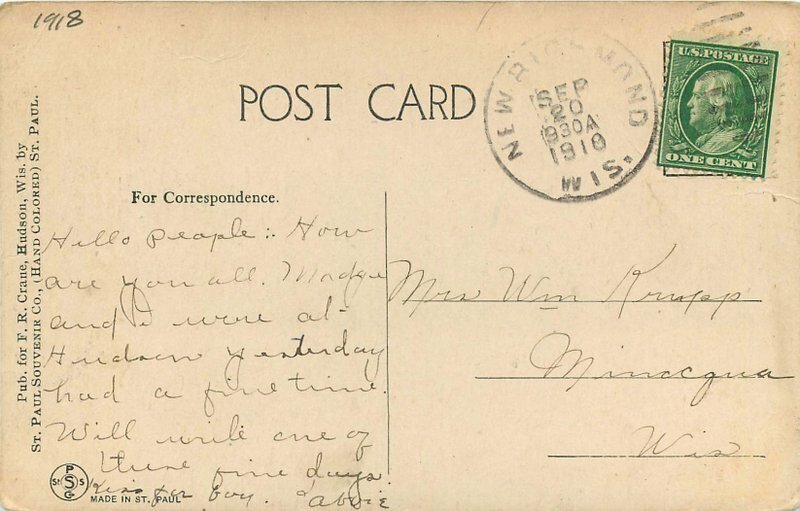 1918
POST CARD
NEW RICHMOND
SEP
20
930A
1910
WIS.
U.S. POSTAGE
ONE CENT
Pub. for F. R. Crane, Hudson, Wis. by
St. Paul Souvenir Co., (Hand Colored) St. Paul.
For Correspondence.
Hello people:. How
are you all. Madge
and I were at
Hudson yesterday
had a fine time.
Will write one of
these fine days.
Kiss for boy.
Mrs Wm Krupp
Minocqua
Wis
P
St S S
Co
MADE IN ST. PAUL